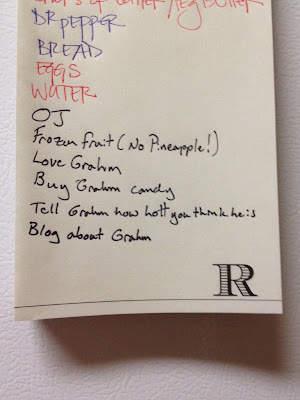 of butter / reg butter
DR pepper
BREAD
EGGS
WATER
OJ
Frozen fruit (No Pineapple!)
Love Grahm
Buy Grahm candy
Tell Grahm how hott you think he is
Blog about Grahm
R